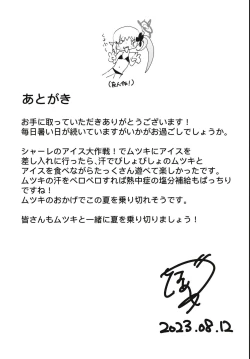 (なんね!)
あとがき
お手に取っていただきありがとうございます！
毎日暑い日が続いていますがいかがお過ごしでしょうか。
シャーレのアイス大作戦！でムツキにアイスを
差し入れに行ったら、汗でびしょびしょのムツキと
アイスを食べながらたっくさん遊べて楽しかったです。
ムツキの汗をペロペロすれば熱中症の塩分補給もばっちり
ですね！
ムツキのおかげでこの夏を乗り切れそうです。
皆さんもムツキと一緒に夏を乗り切りましょう！
2023.08.12